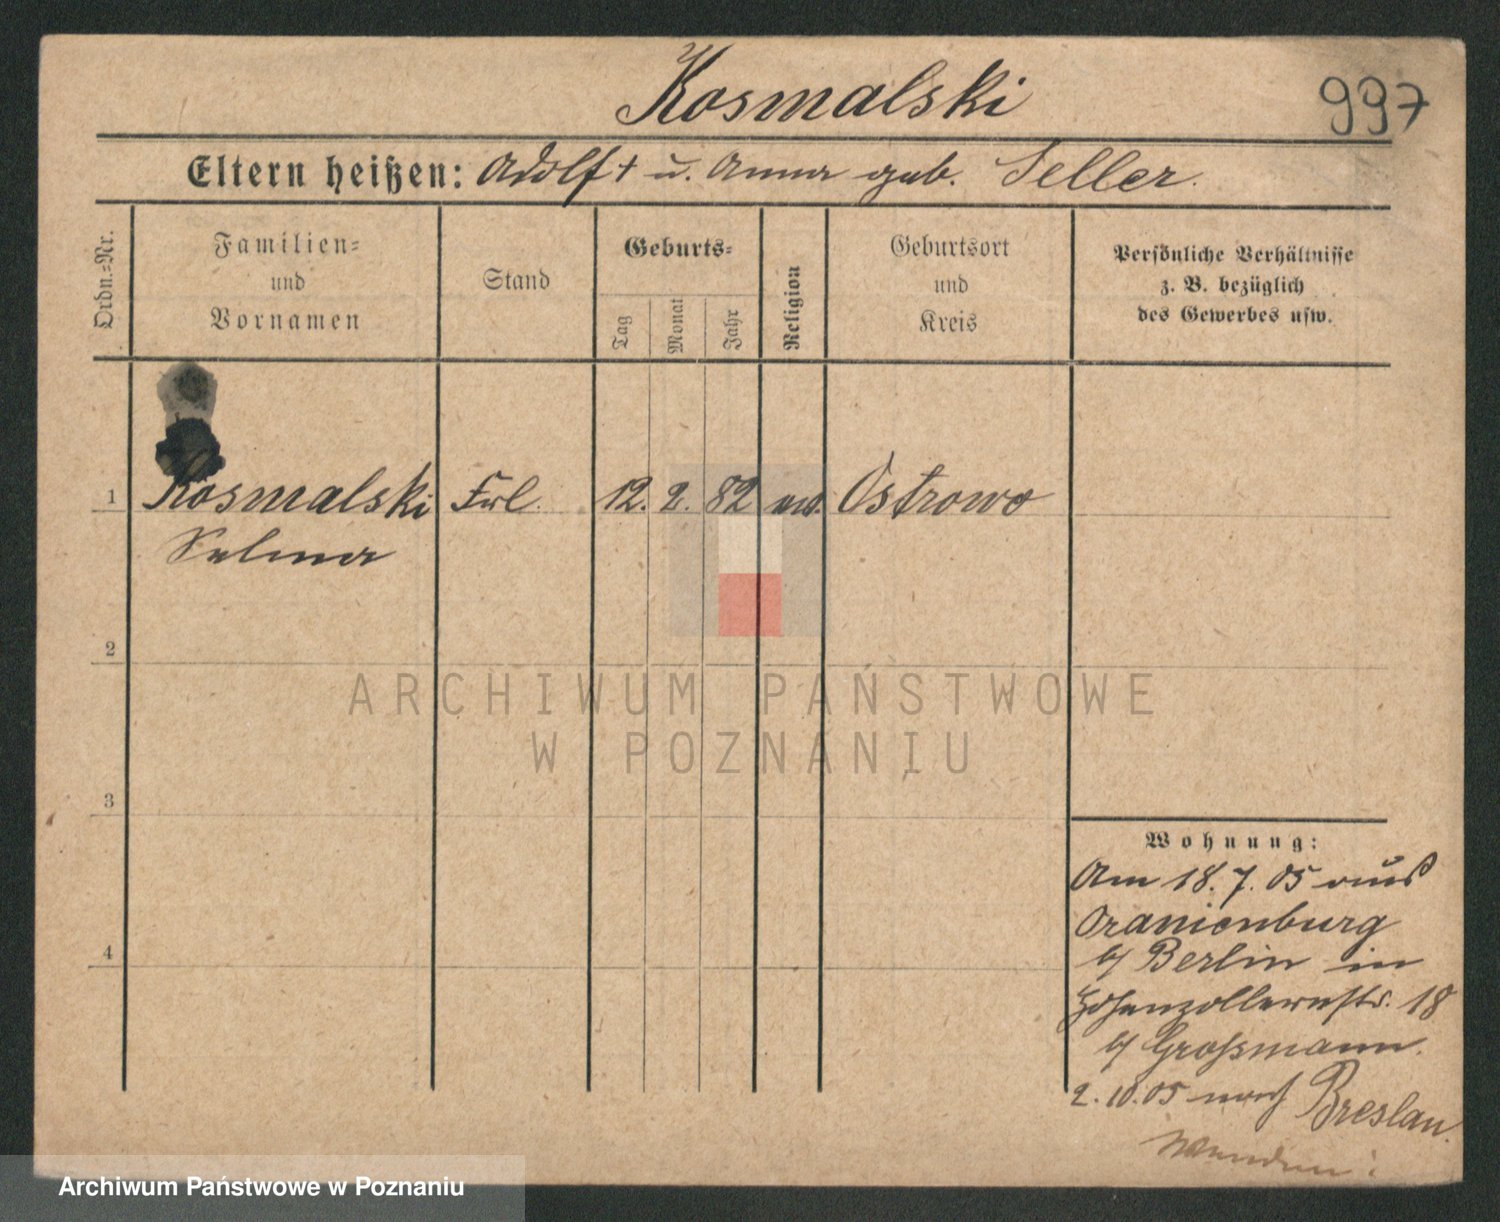 Kosmalski
997
Eltern heißen: Adolf † u. Anna geb. Seller.
Ordn.-Nr.
Familien-
und
Vornamen
Stand
Geburts-
Tag
Monat
Jahr
Religion
Geburtsort
und
Kreis
Persönliche Verhältnisse
z. B. bezüglich
des Gewerbes usw.
1 Kosmalski Frl. 12. 2. 82 Ostrowo
Selma
2
3
4
Wohnung:
Am 18. 7. 05 aus
Oranienburg
b/ Berlin in
Hohenzollernstr. 18
b/ Großmann.
2. 10. 05 nach Breslau.
Wenden!
ARCHIWUM PAŃSTWOWE
W POZNANIU
Archiwum Państwowe w Poznaniu